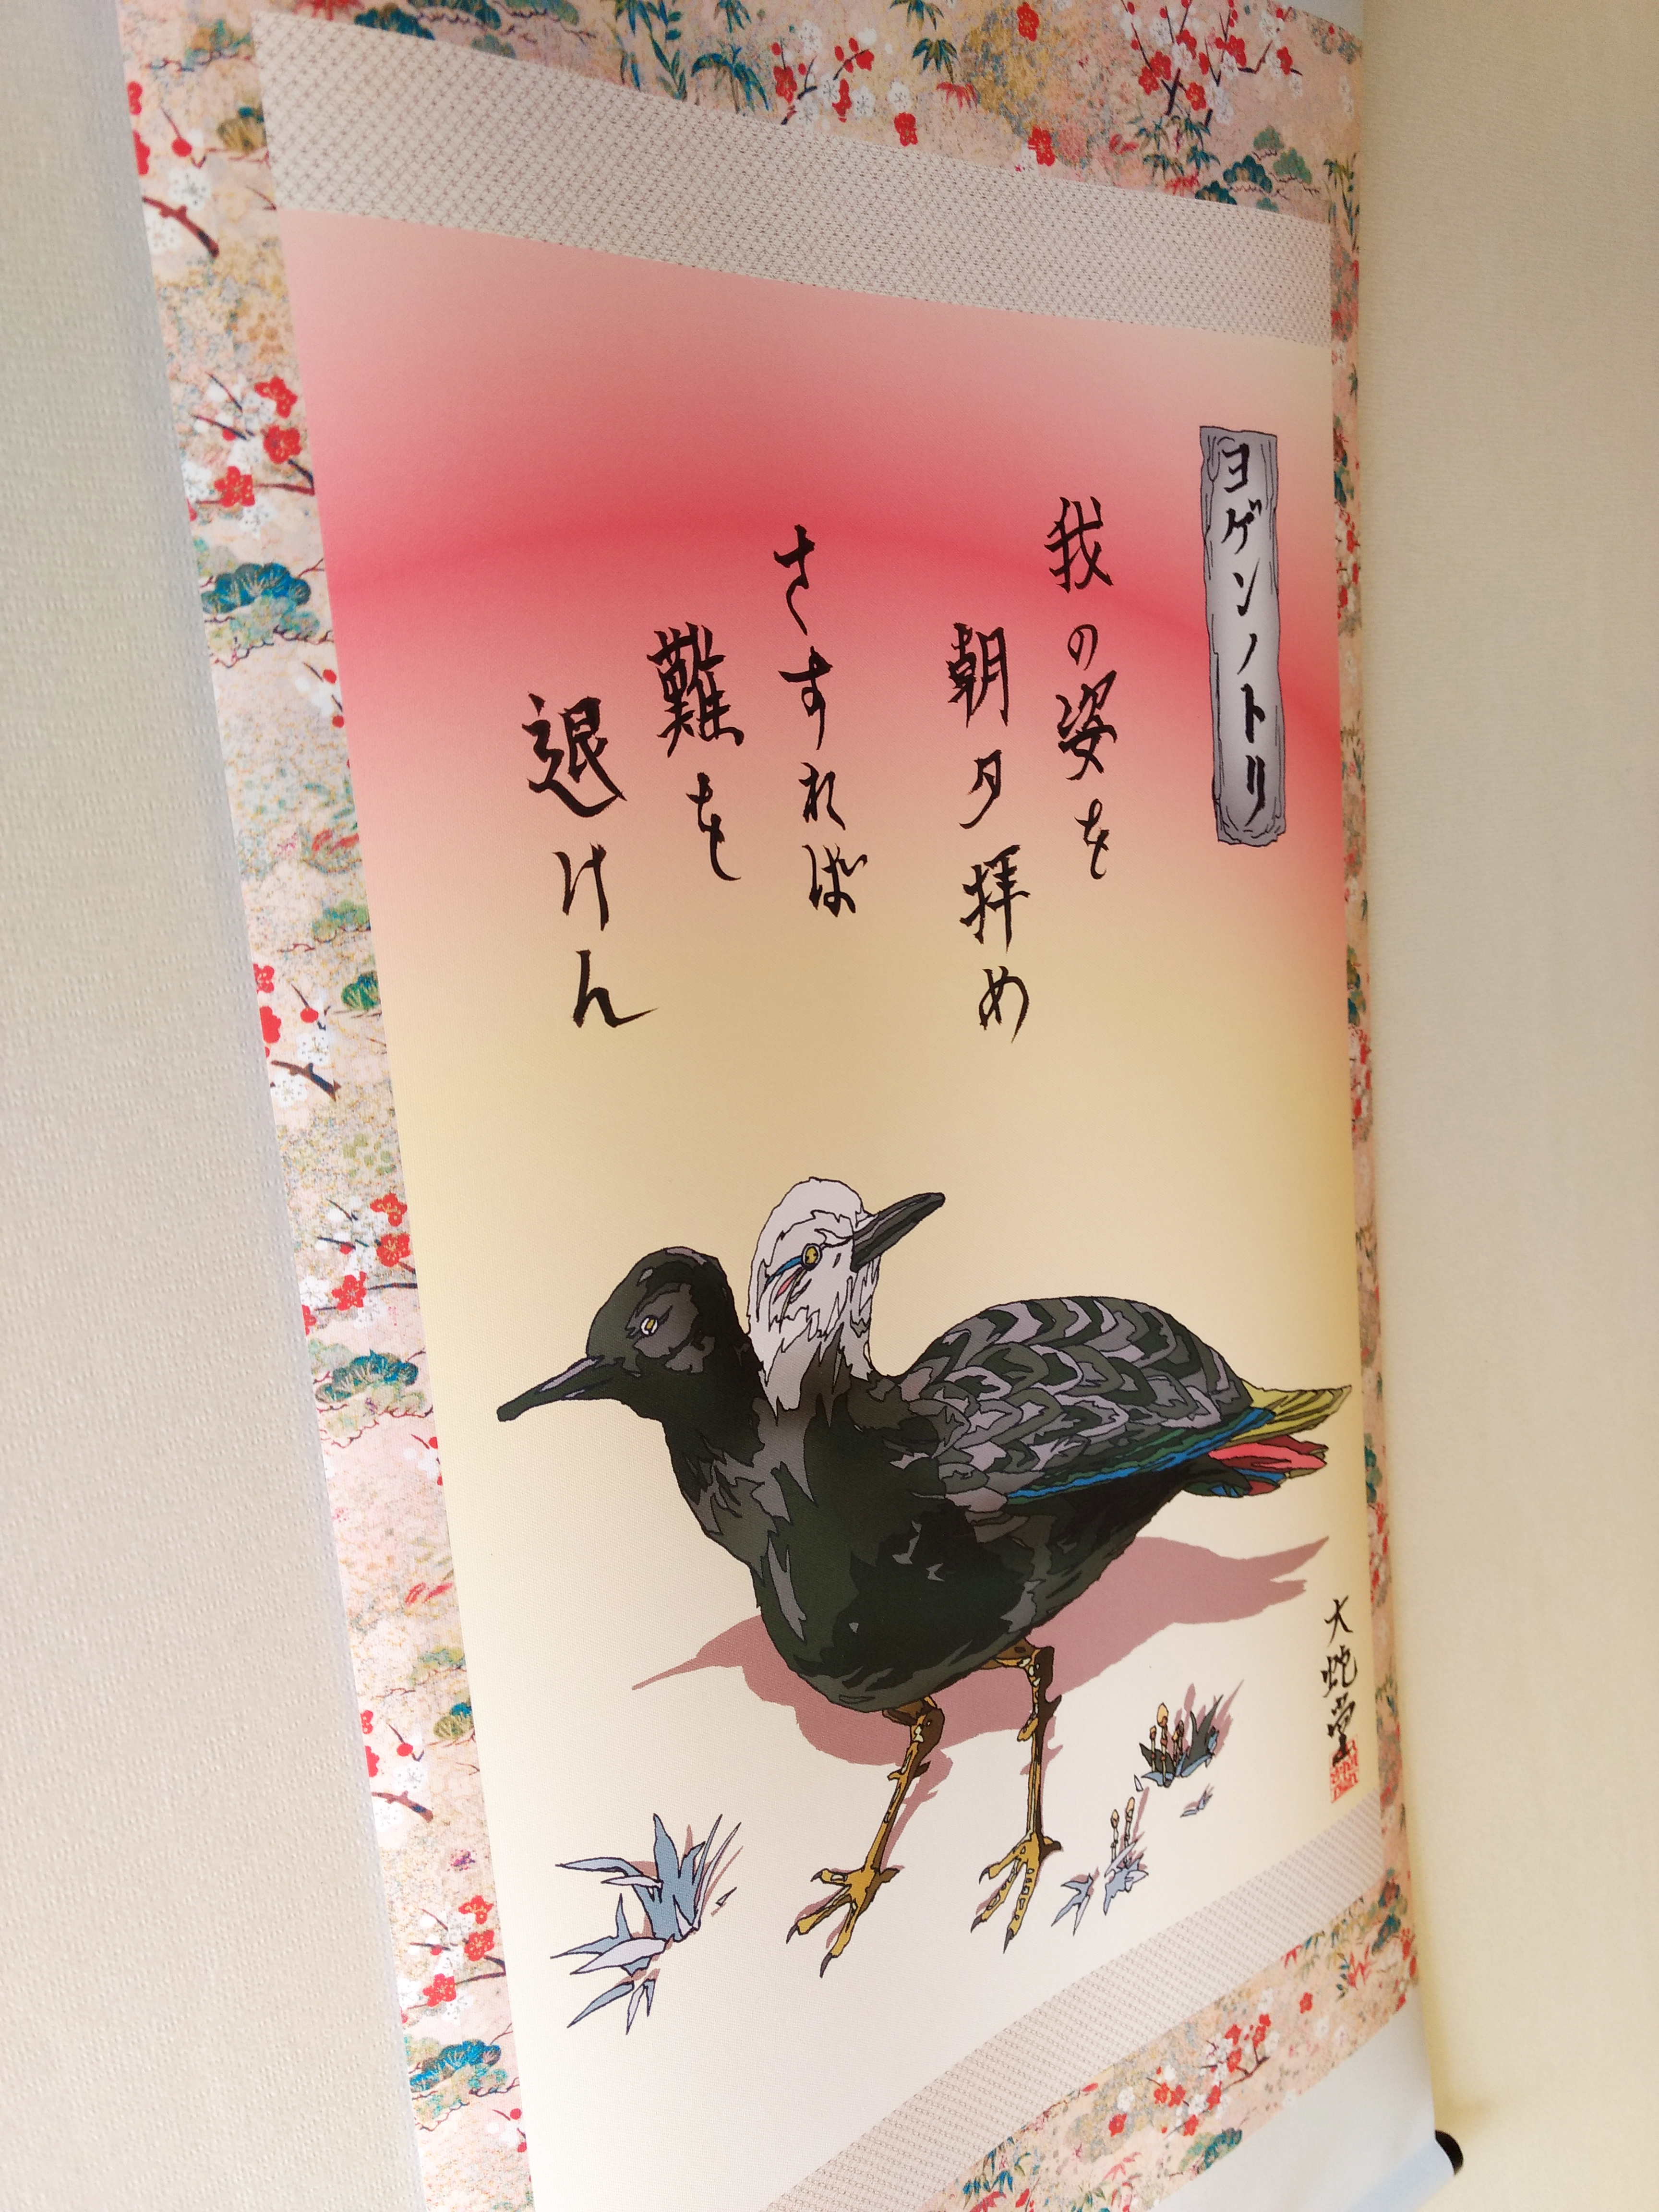 ヨゲンノトリ
我の姿を
朝夕拝め
さすれば
難を
退けん
大蛇堂